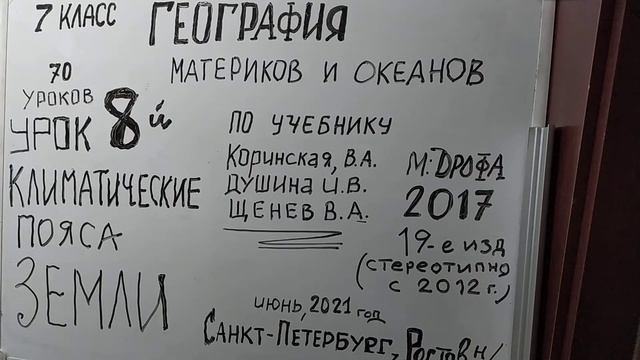 7 КЛАСС ГЕОГРАФИЯ
МАТЕРИКОВ И ОКЕАНОВ
70
УРОКОВ
УРОК 8й
КЛИМАТИЧЕСКИЕ
ПОЯСА
ЗЕМЛИ
ПО УЧЕБНИКУ
Коринская, В.А.
ДУШИНА И.В.
ЩЕНЕВ В.А.
М: ДРОФА
2017
19-е изд
(стереотипно
с 2012 г.)
июнь, 2021 год
САНКТ-ПЕТЕРБУРГ, РОСТОВ Н/